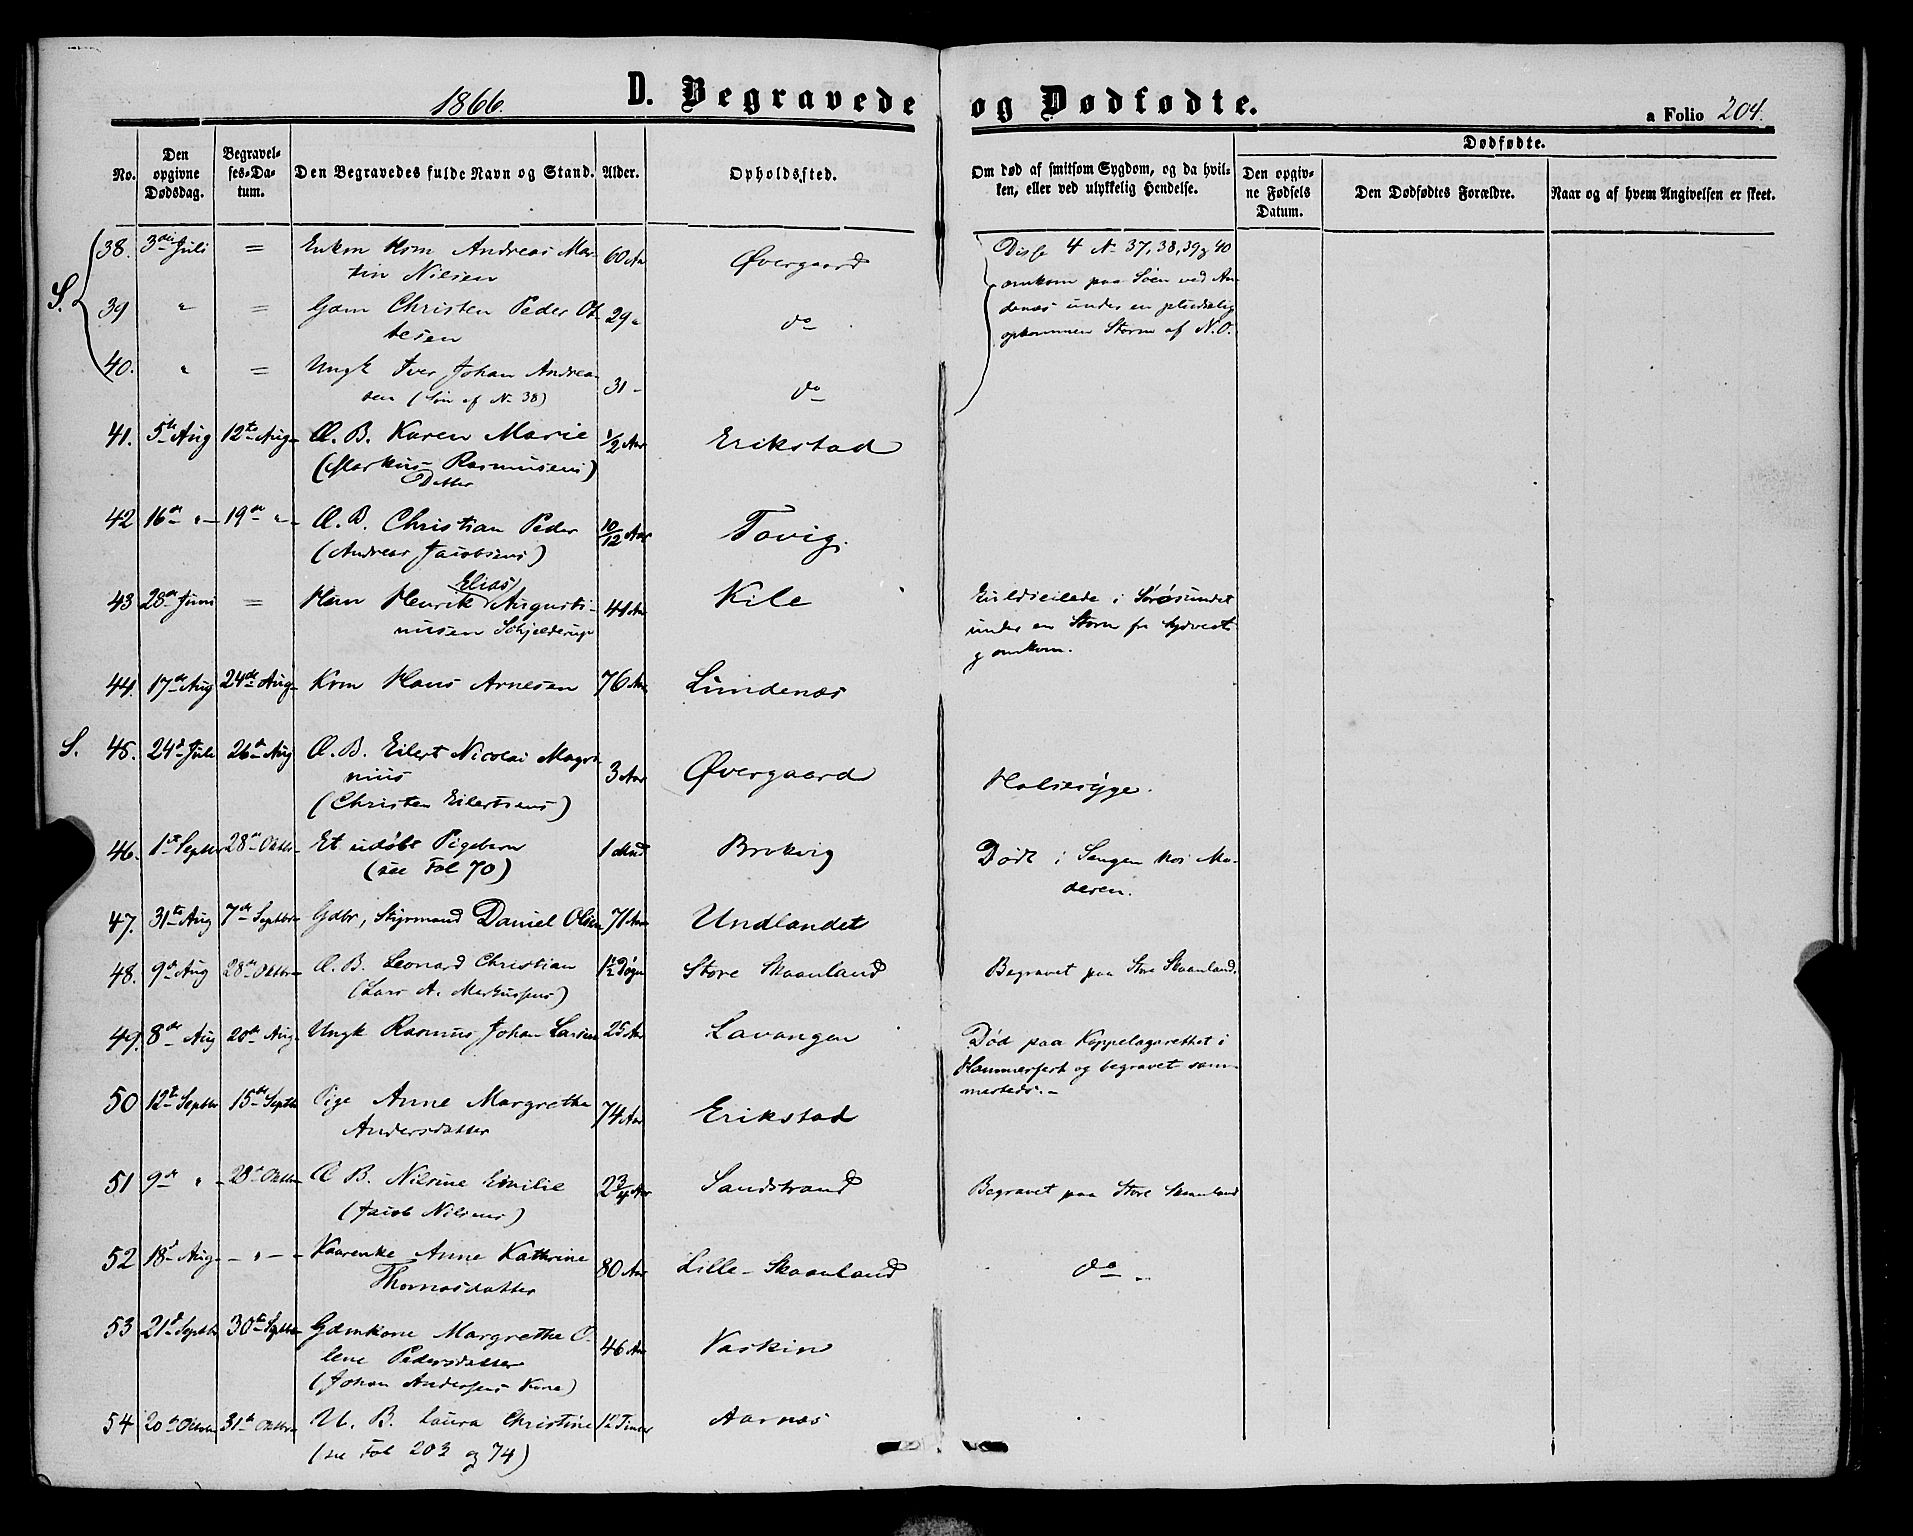 1866.
D. Begravede og Dødfødte.
a Folio 204.
No.
Den opgivne Dødsdag.
Begravelses-Datum.
Den Begravedes fulde Navn og Stand.
Alder.
Opholdssted.
Om død af smitsom Sygdom, og da hvilken, eller ved ulykkelig Hendelse.
Dødfødte.
Den opgivne Fødsels Datum.
Den Dødfødtes Forældre.
Naar og af hvem Angivelsen er skeet.
S.
38. 3die Juli = Enkm Kom Andreas Mar- 60 Aar Øvergaard Disse 4 N. 37, 38, 39 og 40
tin Nilsen omkom paa Søen ved An-
39 " = Gdm Christen Peder Ot- 29 " do denæs under en pludselig
tesen opkommen Storm af N.O.
40. " = Ungk Iver Johan Andrea- 31 - do
sen (Søn af N. 38)
41. 5te Aug 12te Aug Æ. B. Karen Marie 1/2 Aar Erikstad
(Markus Rasmusens)
Datter
42 16de " 19de " Æ. B. Christian Peder 10/12 Aar Tovig.
(Andreas Jacobsens)
43 28de Juni = Hm Henrik Elias Augusti- 41 Aar Kile Kuldseilede i Sørøsundet
nusen Schjelderup under en Storm fra Sydvest
og omkom.
44. 17de Aug 24de Aug Kom Hans Arnesen 76 Aar Lundenæs
S. 45. 24d Juli 26d Aug Æ. B. Eilert Nicolai Magn- 3 Aar Øvergaard Halssyge.
nius
(Christen Eilertsens)
46. 1st Septbr 28de Oktbr Et udøbt Pigebarn 1 Mnd Brokvig Dødt i Sengen hos Mo-
(see Fol 70) deren.
47. 31te Aug 7de Septbr Gdbr, Styrmand Daniel Olsen 71 Aar Undlandet
48. 9d Aug 28de Oktbr Æ. B. Leonard Christian 1 1/2 Døgn Store Skaanland Begravet paa Store Skaanland.
(Lars A. Markussens)
49. 8de Aug 20de Aug Ungk Rasmus Johan Larsen 25 Aar Lavangen Død paa Koppelazarettet i
Hammerfest og begravet sam-
mesteds.-
50 12te Septbr 15de Septbr Pige Anne Margrethe 74 Aar Erikstad
Andersdatter
51 9de " 28d Oktbr Æ B. Nilsine Emilie 2 3/4 Aar Sandstrand Begravet paa Store Skaanland
(Jacob Nilsens)
52 18d Aug - " - Kaarenke Anne Kathrine 80 Aar Lille-Skaanland do "
Thomasdatter
53 21d Septbr 30te Septbr Gdmkone Margrethe O- 46 Aar Vaskin
lene Pedersdatter
(Johan Anderssens Kone)
54 20de Oktober 31te Oktbr U. B. Laura Christine 12 Timer Aarnæs
(see Fol 203 og 74)